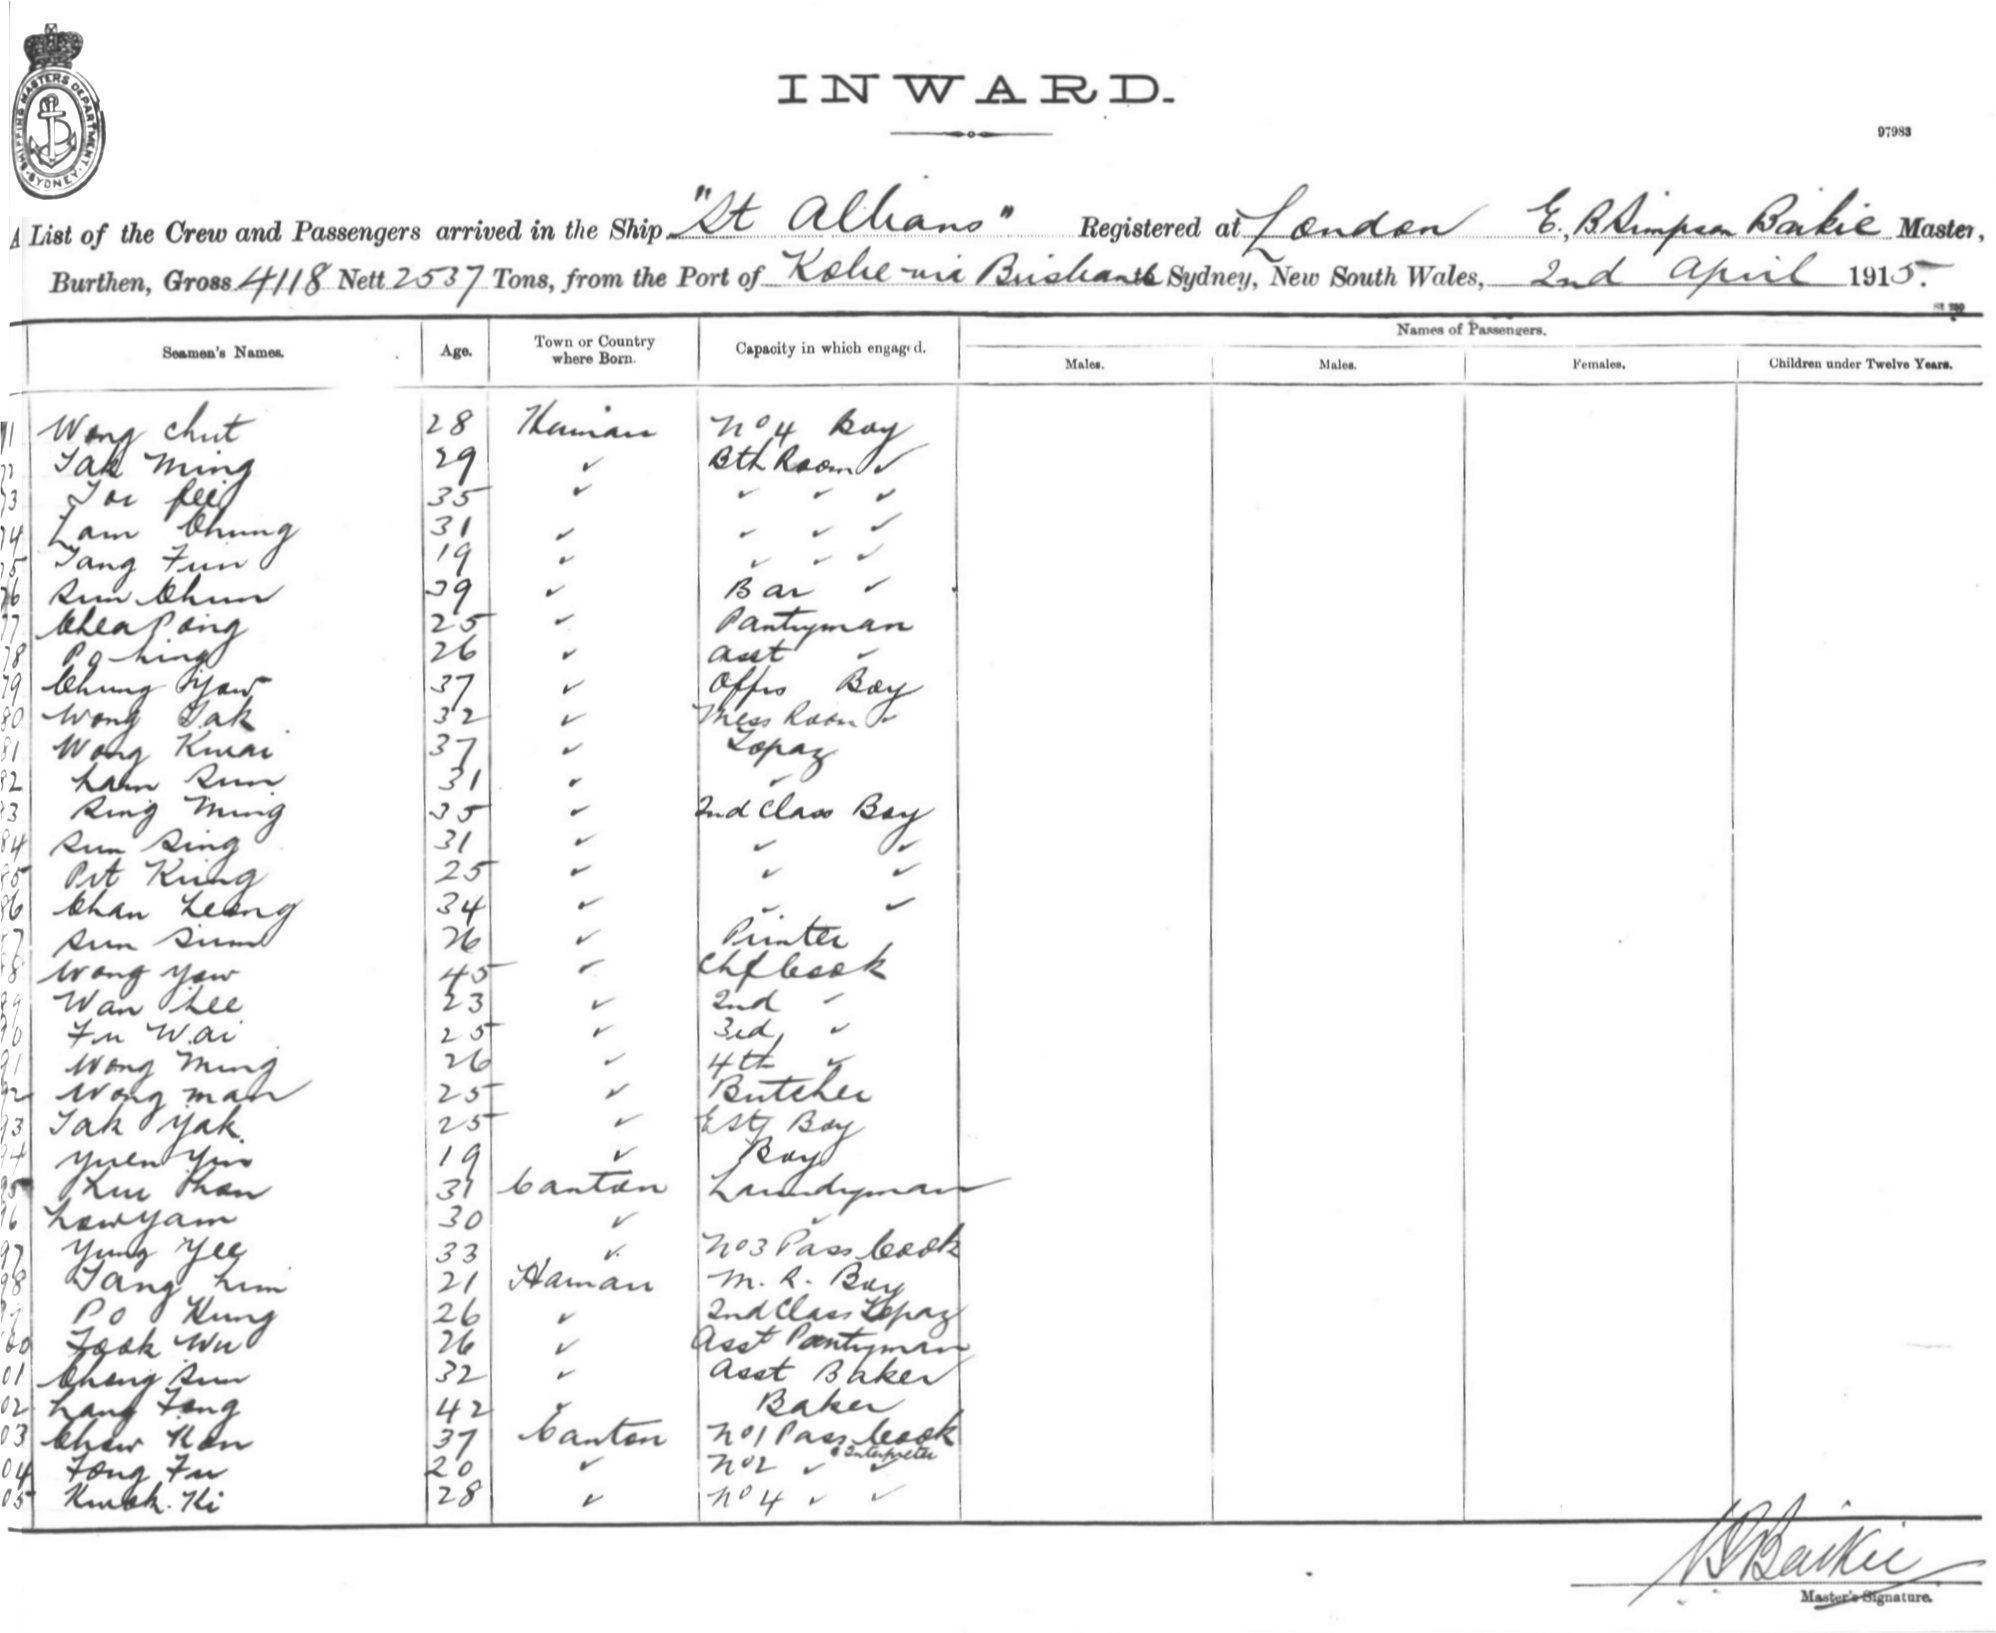 SHIPPING MASTERS DEPARTMENT. SYDNEY.
INWARD.
97983
A List of the Crew and Passengers arrived in the Ship "St Albans" Registered at London E. B Simpson Baikie Master,
Burthen, Gross 4118 Nett 2537 Tons, from the Port of Kobe via Brisbane to Sydney, New South Wales, 2nd April 1915.
Names of Passengers.
Seamen's Names. Age. Town or Country where Born. Capacity in which engaged. Males. Males. Females. Children under Twelve Years.
71 Wong Chut 28 Hainan No 4 Boy
72 Tak Ming 29 ✓ Bth Room ✓
73 Toi 35 ✓ ✓ ✓ ✓
74 Lam Chung 31 ✓ ✓ ✓ ✓
75 Tang Fun 19 ✓ ✓ ✓ ✓
76 Sum Chun 39 ✓ Bar ✓
77 Chea Pong 25 ✓ Pantryman
78 Po hing 26 ✓ asst ✓
79 Chung Yow 37 ✓ Offrs Boy
80 Wong Tak 32 ✓ Mess Room ✓
81 Wong Kwai 37 ✓ Topaz
82 Lam Sum 31 ✓ ✓
83 Sing Ming 35 ✓ 2nd Class Boy
84 Sum Sing 31 ✓ ✓ ✓
85 Pit Kung 25 ✓ ✓ ✓
86 Chan Leong 34 ✓ ✓ ✓
87 Sum Sum 26 ✓ Printer
88 Wong Yow 45 ✓ Chf Cook
89 Wan Lee 23 ✓ 2nd ✓
90 Fu Wai 25 ✓ 3rd ✓
91 Wong Ming 26 ✓ 4th ✓
92 Wong man 25 ✓ Butcher
93 Tak Yak 25 ✓ Boy
94 Yuen Yin 19 ✓ Boy
95 Liu 31 Canton Laundryman
96 Low Yam 30 ✓ ✓
97 Yung Yee 33 ✓ No 3 Pass Cook
98 Tang Lim 21 Hainan M. R. Boy
99 Po Kung 26 ✓ 2nd Class Topaz
00 Fook Wu 26 ✓ Asst Pantryman
01 Chong Sum 32 ✓ Asst Baker
02 Lang Fong 42 ✓ Baker
03 Chow Kon 37 Canton No 1 Pass Cook
& Interpreter
04 Fong Fu 20 ✓ No 2 ✓ ✓
05 Kwok Ki 28 ✓ No 4 ✓ ✓
Baikie
Master's Signature.